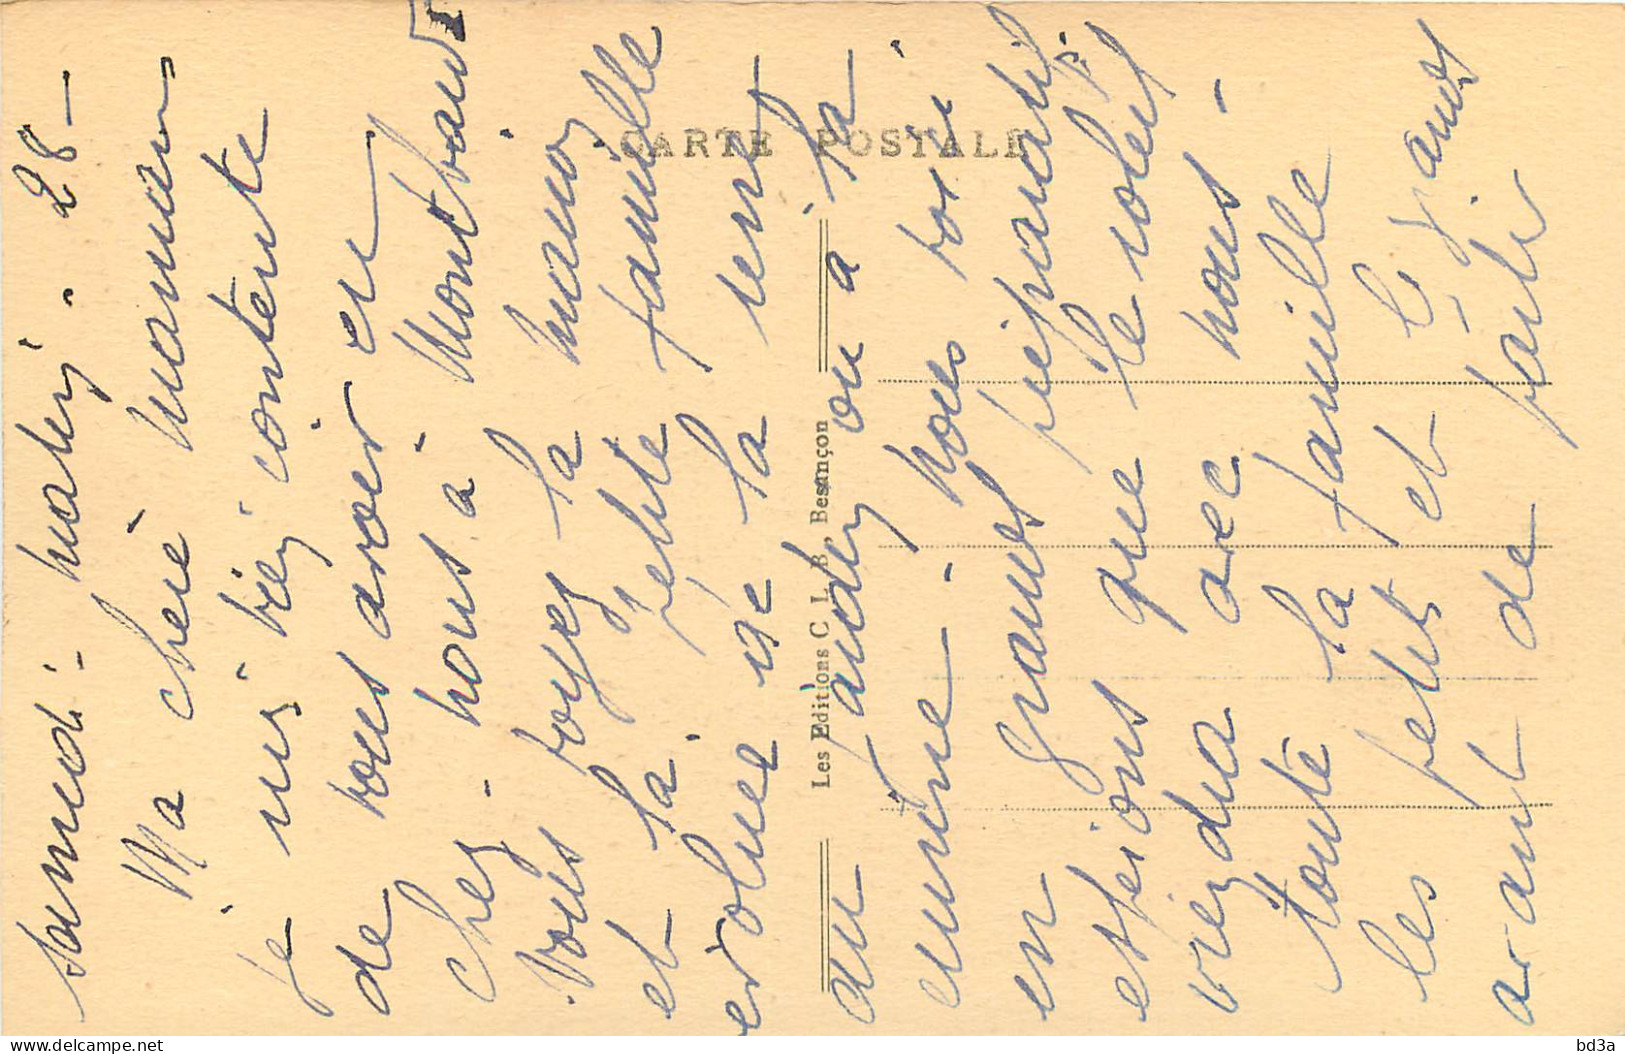 samedi - matin - 28 -
Ma cheré maman
je suis bien contente
de vous avoir eu
chez - nous à Montbard
Vous voyez la maison
et la petite famille
evoluee
au ou a la
cuisine - nous voici
en grands préparatifs
espérons que le soleil
viendra avec nous -
toute la famille
les petits et les grands
avant de partir
CARTE POSTALE
Les Editions C L B, Besançon
bd3a